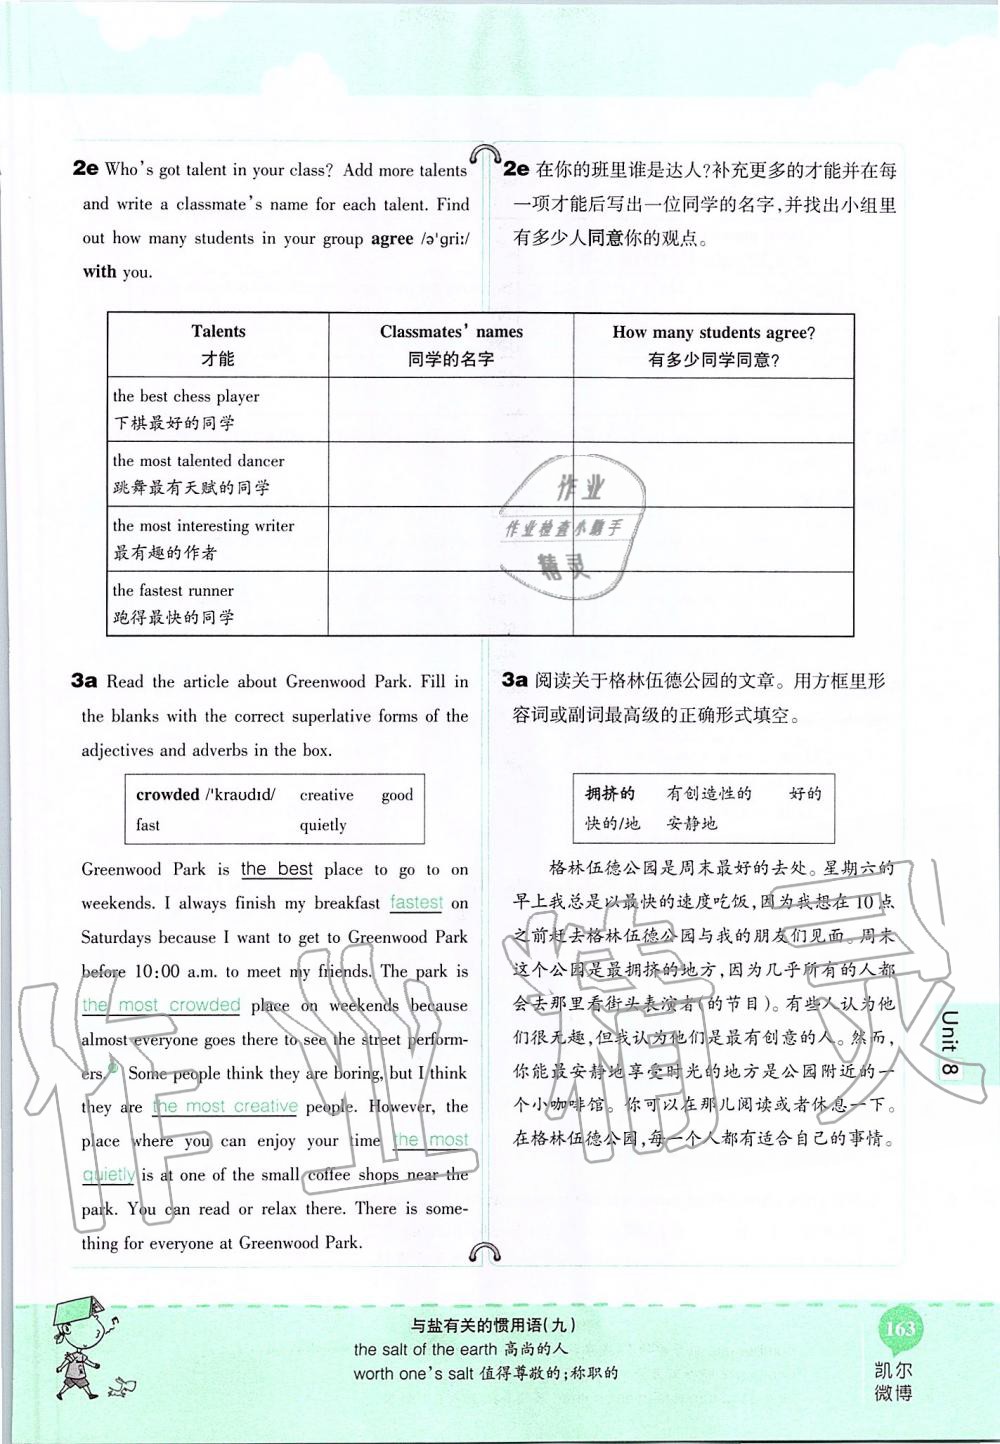 2e Who's got talent in your class? Add more talents
and write a classmate's name for each talent. Find
out how many students in your group agree /ə'ɡriː/
with you.
2e 在你的班里谁是达人?补充更多的才能并在每
一项才能后写出一位同学的名字,并找出小组里
有多少人同意你的观点。
Talents
才能
Classmates' names
同学的名字
How many students agree?
有多少同学同意?
the best chess player
下棋最好的同学
the most talented dancer
跳舞最有天赋的同学
the most interesting writer
最有趣的作者
the fastest runner
跑得最快的同学
作业
作业检查小助手
精灵
3a Read the article about Greenwood Park. Fill in
the blanks with the correct superlative forms of the
adjectives and adverbs in the box.
crowded /'kraʊdɪd/ creative good
fast quietly
Greenwood Park is the best place to go to on
weekends. I always finish my breakfast fastest on
Saturdays because I want to get to Greenwood Park
before 10:00 a.m. to meet my friends. The park is
the most crowded place on weekends because
almost everyone goes there to see the street perform-
ers. Some people think they are boring, but I think
they are the most creative people. However, the
place where you can enjoy your time the most
quietly is at one of the small coffee shops near the
park. You can read or relax there. There is some-
thing for everyone at Greenwood Park.
3a 阅读关于格林伍德公园的文章。用方框里形
容词或副词最高级的正确形式填空。
拥挤的 有创造性的 好的
快的/地 安静地
格林伍德公园是周末最好的去处。星期六的
早上我总是以最快的速度吃饭,因为我想在 10 点
之前赶去格林伍德公园与我的朋友们见面。周末
这个公园是最拥挤的地方,因为几乎所有的人都
会去那里看街头表演者(的节目)。有些人认为他
们很无趣,但我认为他们是最有创意的人。然而,
你能最安静地享受时光的地方是公园附近的一
个小咖啡馆。你可以在那儿阅读或者休息一下。
在格林伍德公园,每一个人都有适合自己的事情。
作业精灵
Unit 8
与盐有关的惯用语(九)
the salt of the earth 高尚的人
worth one's salt 值得尊敬的;称职的
163
凯尔
微博